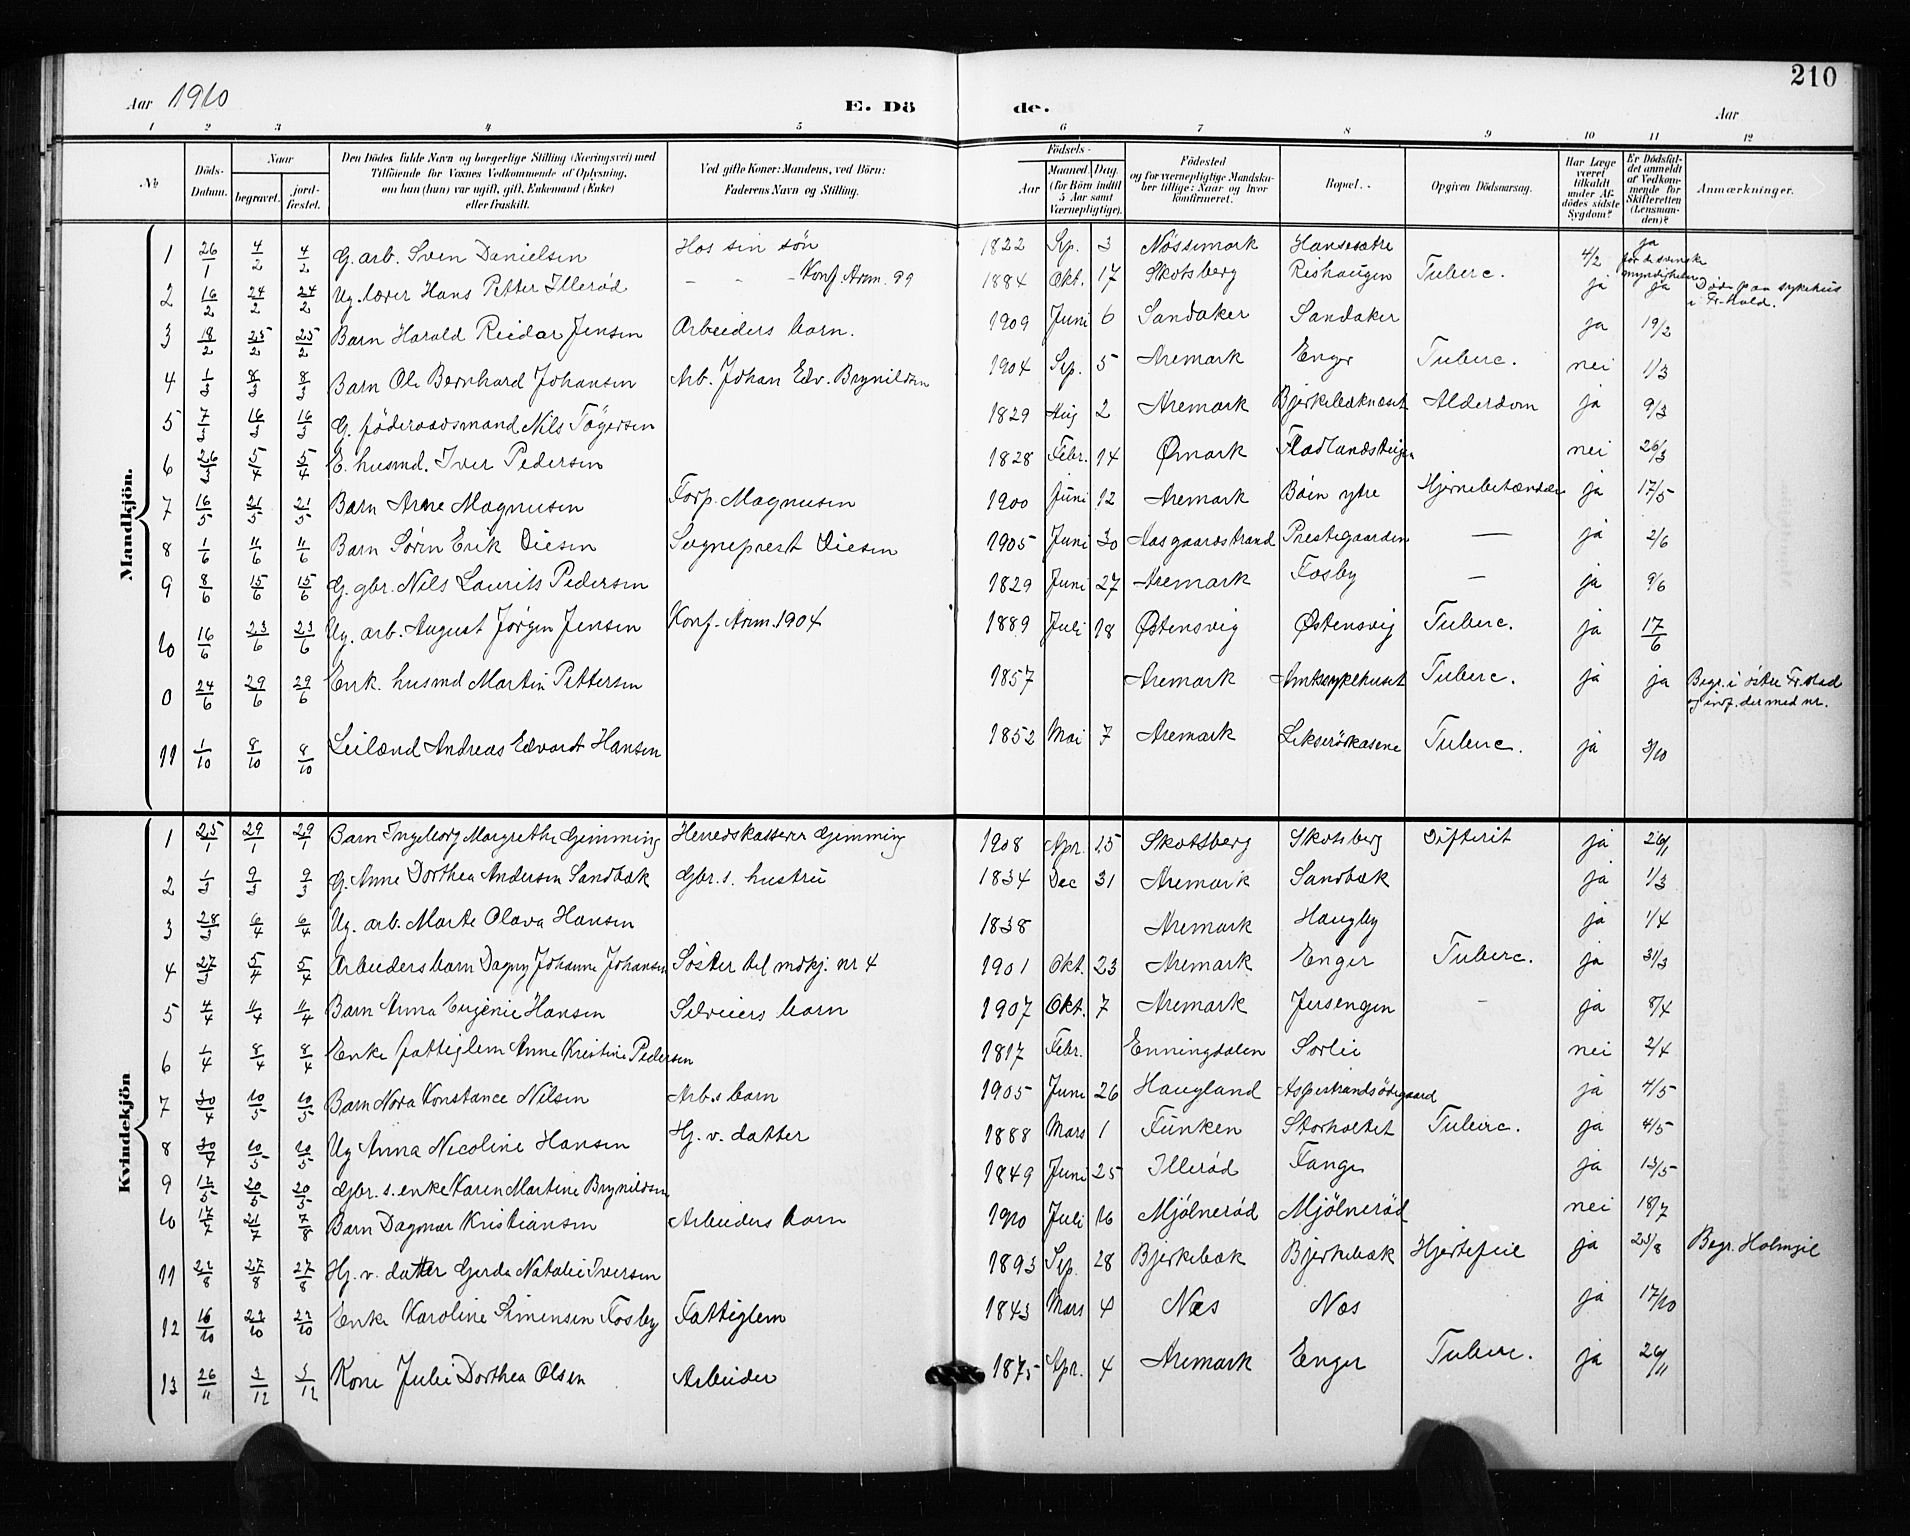 210
Aar 1910 E. Dö de. Aar
1 2 3 4 5 6 7 8 9 10 11 12
No. Döds-Datum. Naar begravet. jordfæstet. Den Dödes fulde Navn og borgerlige Stilling (Næringsvei) med Tilföiende for Voxnes Vedkommende af Oplysning, om han (hun) var ugift, gift, Enkemand (Enke) eller fraskilt. Ved gifte Koner: Mandens, ved Börn: Faderens Navn og Stilling. Födsels- Aar Maaned Dag (for Börn indtil 5 Aar samt Værnepligtige). Födested og for værnepligtige Mandskaber tillige: Naar og hvor konfirmeret. Bopæl. Opgiven Dödsaarsag. Har Læge været tilkaldt under Afdödes sidste Sygdom? Er Dödsfaldet anmeldt af Vedkommende for Skifteretten (Lensmanden)? Anmærkninger.
Mandkjön.
1 26/1 4/2 4/2 G. arb. Sven Danielsen Hos sin søn 1822 Sep. 3 Nössemark Hansesætre 4/2 ja for de svenske myndigheter
2 16/2 24/2 24/2 Ug. lærer Hans Petter Illerød - - - Konf. Arem. 99 1884 Okt. 17 Skotsberg Rishaugen Tuberc. ja ja Død paa sykehus i Fr.hald.
3 18/2 25/2 25/2 Barn Harald Reidar Jensen Arbeiders barn. 1909 Juni 6 Sandaker Sandaker ja 19/2
4 1/3 8/3 8/3 Barn Ole Bernhard Johansen Arb. Johan Edv. Brynildsen 1904 Sep. 5 Aremark Enger Tuberc. nei 1/3
5 7/3 16/3 16/3 G. föderaadsmand Nils Tögersen 1829 Aug 2 Aremark Bjerkebæknæset Alderdom ja 9/3
6 26/3 5/4 5/4 E. husmd. Iver Pedersen 1828 Febr. 14 Ømark nei 26/3
7 16/5 21/5 21/5 Barn Arne Magnusen Forp. Magnusen 1900 Juni 12 Aremark Böen ytre Hjernebetændelse ja 17/5
8 1/6 11/6 11/6 Barn Sören Erik Diesen Sogneprest Diesen 1905 Juni 30 Aasgaardstrand Prestegaarden — ja 2/6
9 8/6 15/6 15/6 G. gbr. Nils Laurits Pedersen 1829 Juni 27 Aremark Fosby — ja 9/6
10 16/6 23/6 23/6 Ug. arb. August Jörgen Jensen Konf. Arem. 1904 1889 Juli 18 Østensvig Østensvig Tuberc. ja 17/6
0 24/6 29/6 29/6 Enk. husmd Martin Pettersen 1857 Aremark Amtssykehuset Tuberc. ja ja Begr. i östre Fr.stad og indf. der med nr.
11 1/10 8/10 8/10 Leilænd Andreas Edvardt Hansen 1852 Mai 7 Aremark Tuberc. ja 3/10
Kvindekjön
1 25/1 29/1 29/1 Barn Ingeborg Margrethe Gimming Herredskasserer Gimming 1908 Apr. 15 Skotsberg Skotsberg Difterit ja 26/1
2 1/3 9/3 9/3 G. Anne Dorthea Andersen Sandbæk Gbr. s. hustru 1834 Dec 31 Aremark Sandbæk ja 1/3
3 28/3 6/4 6/4 Ug. arb. Marte Olava Hansen 1838 Aremark Haugby ja 1/4
4 27/3 5/4 5/4 Arbeidersbarn Dagny Johanne Johansen Söster til mdkj. nr 4 1901 Okt. 23 Aremark Enger Tuberc. ja 31/3
5 4/4 11/4 11/4 Barn Anna Eugenie Hansen Selveiers barn 1907 Okt. 7 Aremark Jersengen - ja 8/4
6 1/4 8/4 8/4 Enke fattiglem Anne Kristine Pedersen 1817 Febr. Enningdalen Sorlie nei 2/4
7 30/4 10/5 10/5 Barn Nora Konstance Nilsen Arb.s barn 1905 Juni 26 Haugland Aspestrandsödegaard ja 4/5
8 30/4 10/5 10/5 Ug Anna Nicoline Hansen Hj. v. datter 1888 Mars 1 Funken Storholtet Tuberc. ja 4/5
9 12/5 20/5 20/5 Gbr. s. enke Karen Martine Brynildsen 1849 Juni 25 Illerød Tange ja 13/5
10 17/7 21/7 7/8 Barn Dagmar Kristiansen Arbeiders barn 1910 Juli 16 Mjölneröd Mjölneröd nei 18/7
11 22/8 27/8 27/8 Hj. v. datter Gerda Natalie Iversen 1893 Sep. 28 Bjerkebæk Bjerkebæk Hjertefeil ja 23/8 Begr. Holmgil
12 16/10 22/10 22/10 Enke Karoline Simensen Fosby Fattiglem 1843 Mars 4 Næs Næs ja 17/10
13 26/11 3/12 3/12 Kone Julie Dorthea Olsen Arbeider 1875 Apr. 4 Aremark Enger Tuberc. ja 26/11